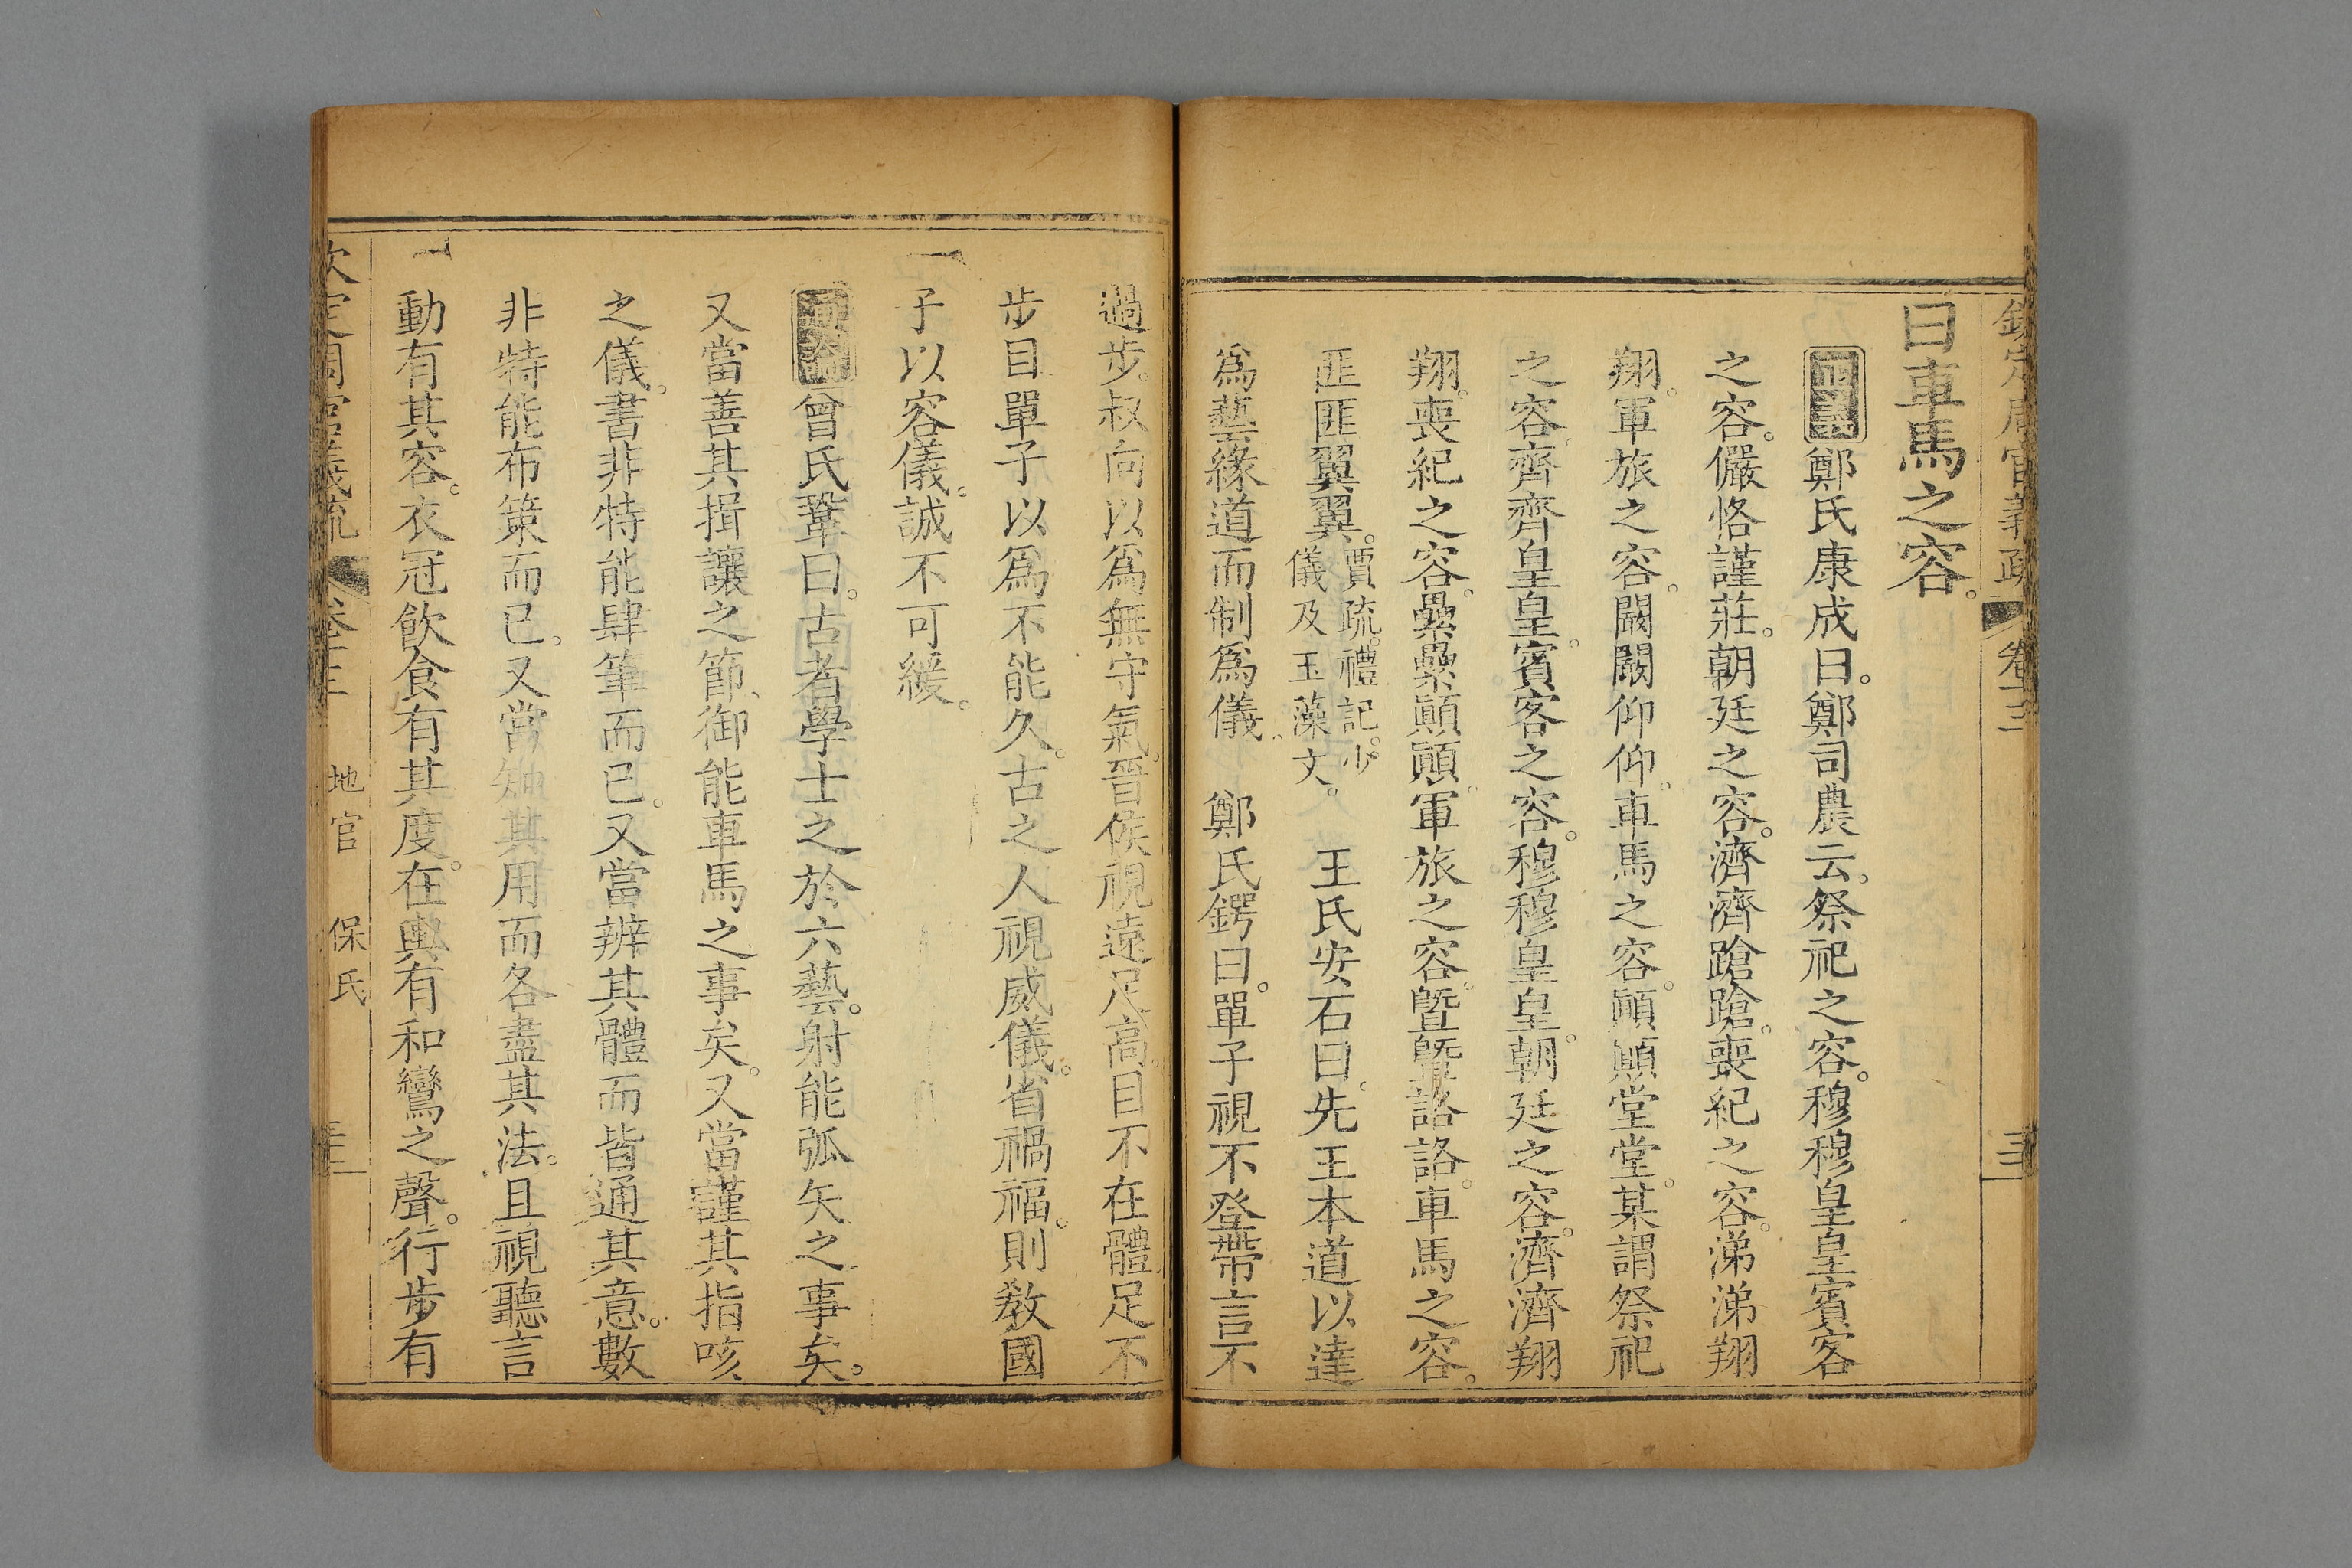 欽定周官義疏 卷十三
曰車馬之容。
正義鄭氏康成曰。鄭司農云。祭祀之容。穆穆皇皇賓客
之容。儼恪謹莊。朝廷之容。濟濟蹌蹌。喪紀之容。涕涕翔
翔。軍旅之容。闞闞仰仰。車馬之容。顚顚堂堂。某謂祭祀
之容。齊齊皇皇。賓客之容。穆穆皇皇。朝廷之容。濟濟翔
翔。喪紀之容。纍纍顚顚。軍旅之容。曁曁詻詻。車馬之容。
匪匪翼翼。賈疏。禮記。少儀及玉藻文。 王氏安石曰。先王本道以達
爲藝緣道而制爲儀、 鄭氏鍔曰。單子視不登帶言不
過步。叔向以爲無守氣。晉侯視遠足高。目不在體足不
步目單子以爲不能久。古之人視威儀。省禍福。則敎國
子以容儀。誠不可緩。
通論曾氏鞏曰。古者學士之於六藝。射能弧矢之事矣。
又當善其揖讓之節、御能車馬之事矣。又當謹其指咳
之儀。書非特能肆筆而已。又當辨其體而皆通其意。數
非特能布策而已。又當知其用而各盡其法。且視聽言
動有其容。衣冠飮食有其度。在輿有和鸞之聲。行步有
欽定周官義疏 卷十三 地官 保氏